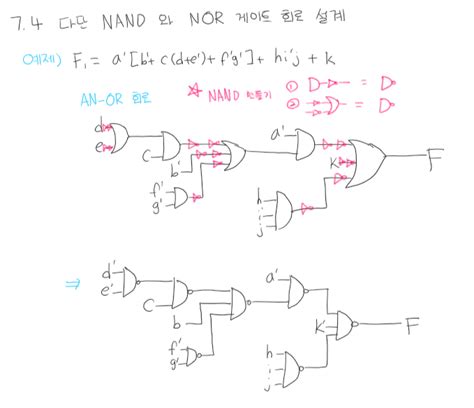 7.4 다단 NAND 와 NOR 게이트 회로 설계
예제) F₁ = a'[b'+ c(d+e')+ f'g'] + hi'j + k
AN-OR 회로
☆ NAND 만들기
① =
② =
d
e
c
b'
f'
g'
a'
h
i
j
k
F
⇒
d'
e'
c
b
f'
g'
a'
h
i
j
k'
F